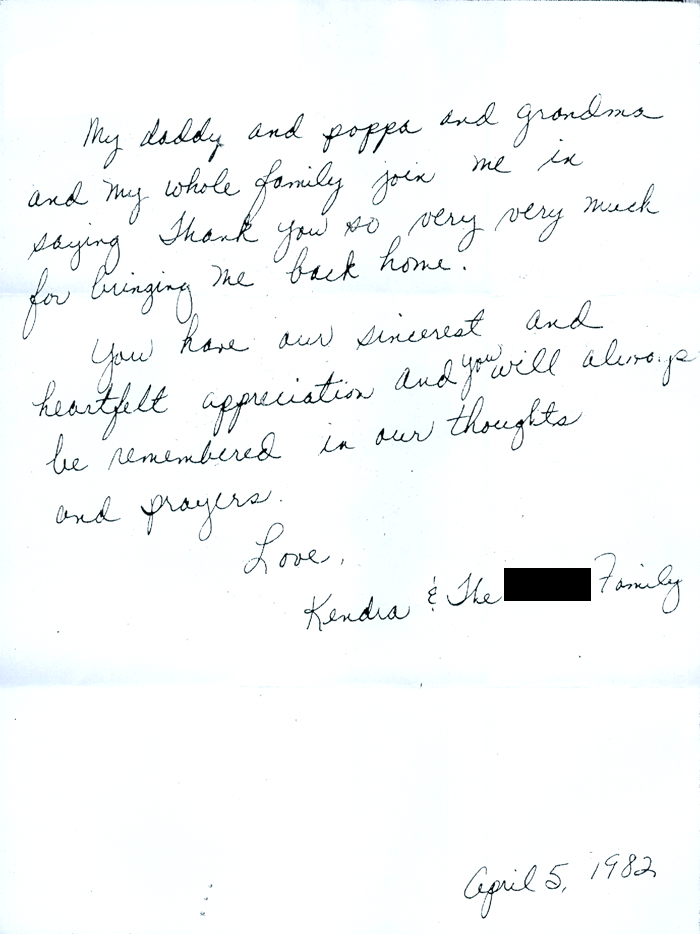 My daddy and poppa and grandma
and my whole family join me in
saying Thank you so very very much
for bringing me back home.
You have our sincerest and
heartfelt appreciation and you will always
be remembered in our thoughts
and prayers.
Love,
Kendra & The Family
April 5, 1982